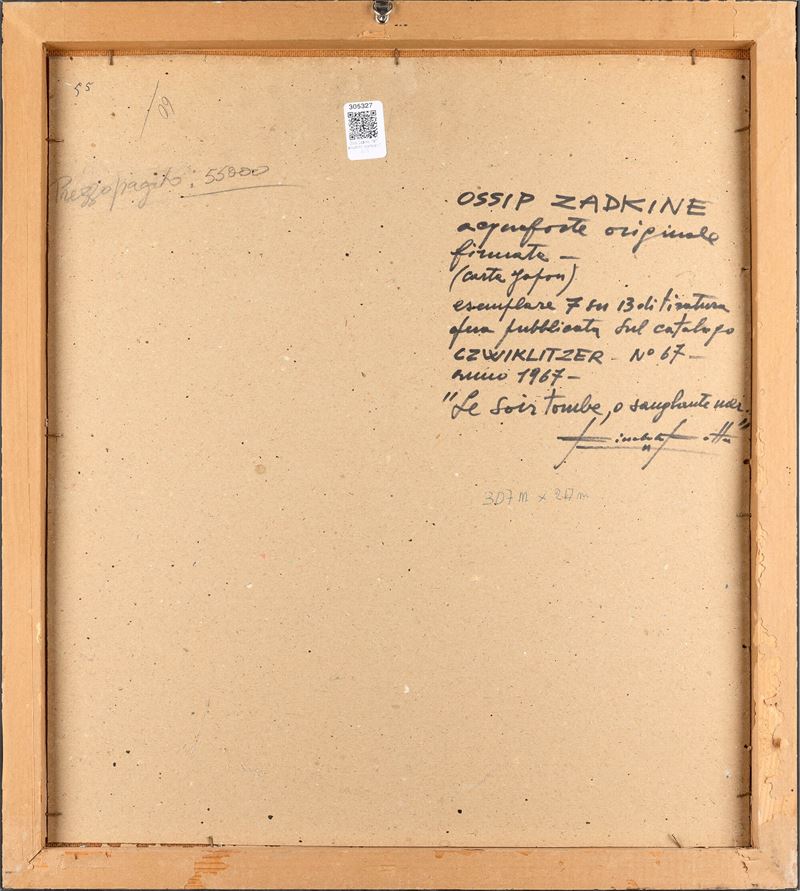 55
/09
305327
Prezzo pagato: 55000
OSSIP ZADKINE
acquaforte originale
firmata —
(carta Japon)
esemplare 7 su 13 di tiratura
pubblicata sul catalogo
CZWIKLITZER - N° 67 —
anno 1967 —
"Le soir tombe, o sanglante nui."